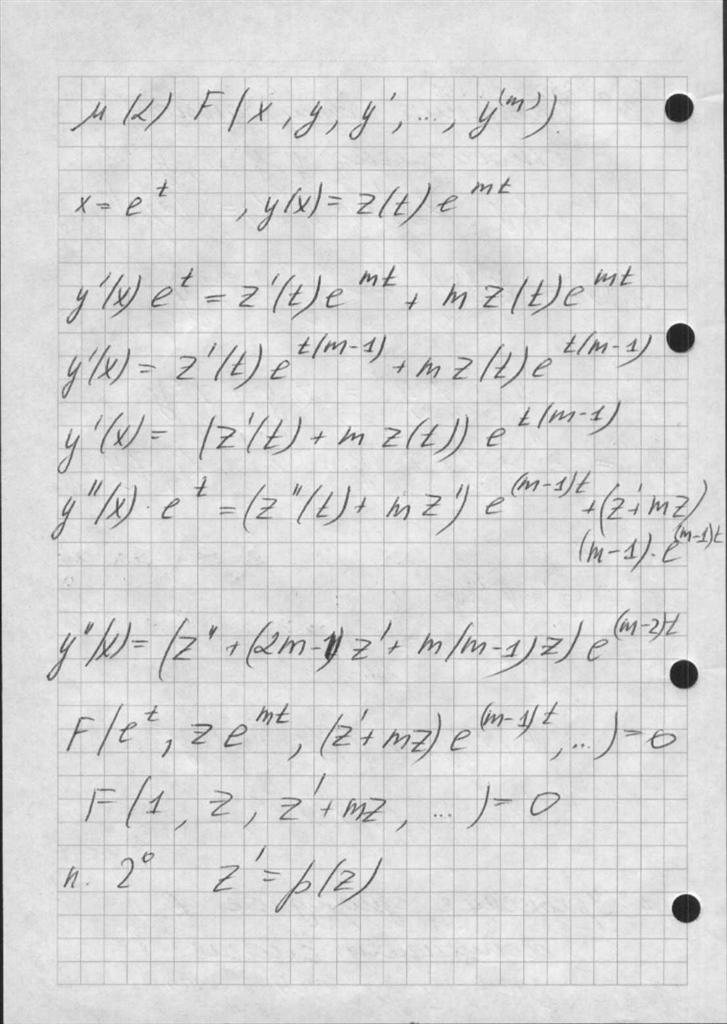 μ(α) F(x, y, y', ..., y^(m))
x = e^t , y(x) = z(t) e^{mt}
y'(x) e^t = z'(t) e^{mt} + m z(t) e^{mt}
y'(x) = z'(t) e^{t(m-1)} + m z(t) e^{t(m-1)}
y'(x) = (z'(t) + m z(t)) e^{t(m-1)}
y''(x) · e^t = (z''(t) + m z') e^{(m-1)t} + (z' + mz)
(m-1) · e^{(m-1)t}
y''(x) = (z'' + (2m-1) z' + m(m-1) z) e^{(m-2)t}
F(e^t, z e^{mt}, (z' + mz) e^{(m-1)t}, ...) = 0
F(1, z, z' + mz, ...) = 0
п. 2° z' = p(z)